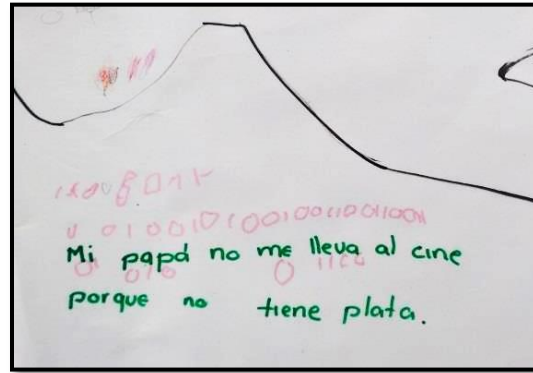 Mi papá no me lleva al cine
porque no tiene plata.